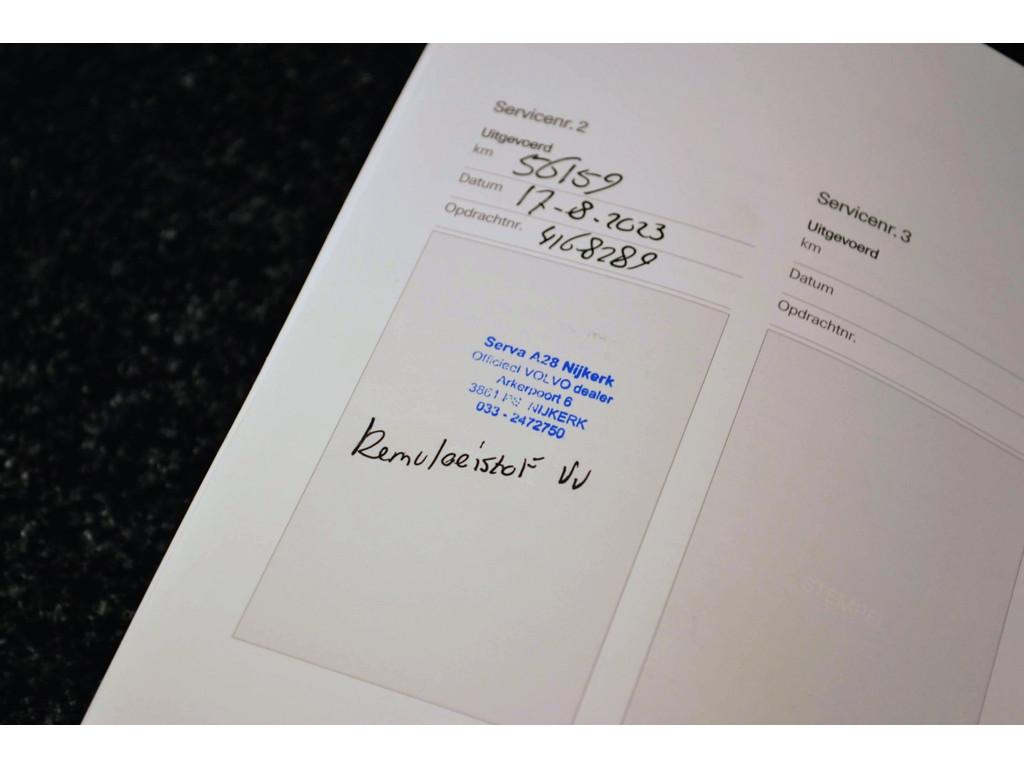 Servicenr. 2
Uitgevoerd
km 56159
Datum 17-8-2023
Opdrachtnr. 4168289
Serva A28 Nijkerk
Officieel VOLVO dealer
Arkerpoort 6
3861 PS NIJKERK
033 - 2472750
Remvloeistof VV
Servicenr. 3
Uitgevoerd
km
Datum
Opdrachtnr.
STEMPEL